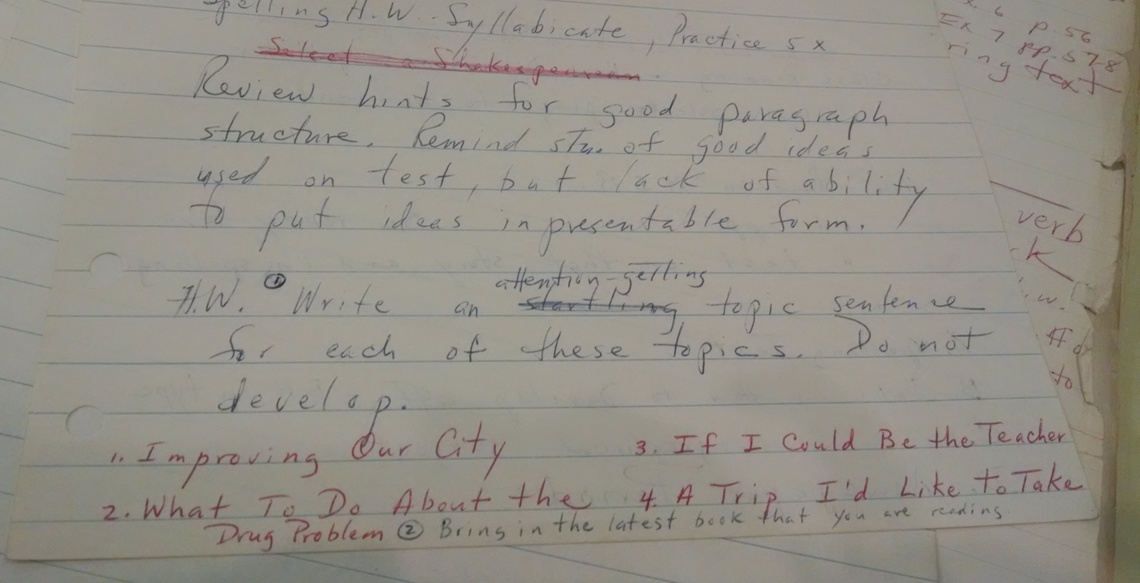 Spelling H.W. Syllabicate, Practice 5 x
Select a Shakespearean
Review hints for good paragraph
structure. Remind stu. of good ideas
used on test, but lack of ability
to put ideas in presentable form.
H.W. ① Write an attention-getting startling topic sentence
for each of these topics. Do not
develop.
1. Improving Our City
2. What To Do About the
Drug Problem
3. If I Could Be the Teacher
4. A Trip I'd Like to Take
② Bring in the latest book that you are reading.
x. 6 p. 56
Ex 7 pp. 57,8
ring text
verb
k
.w.
to